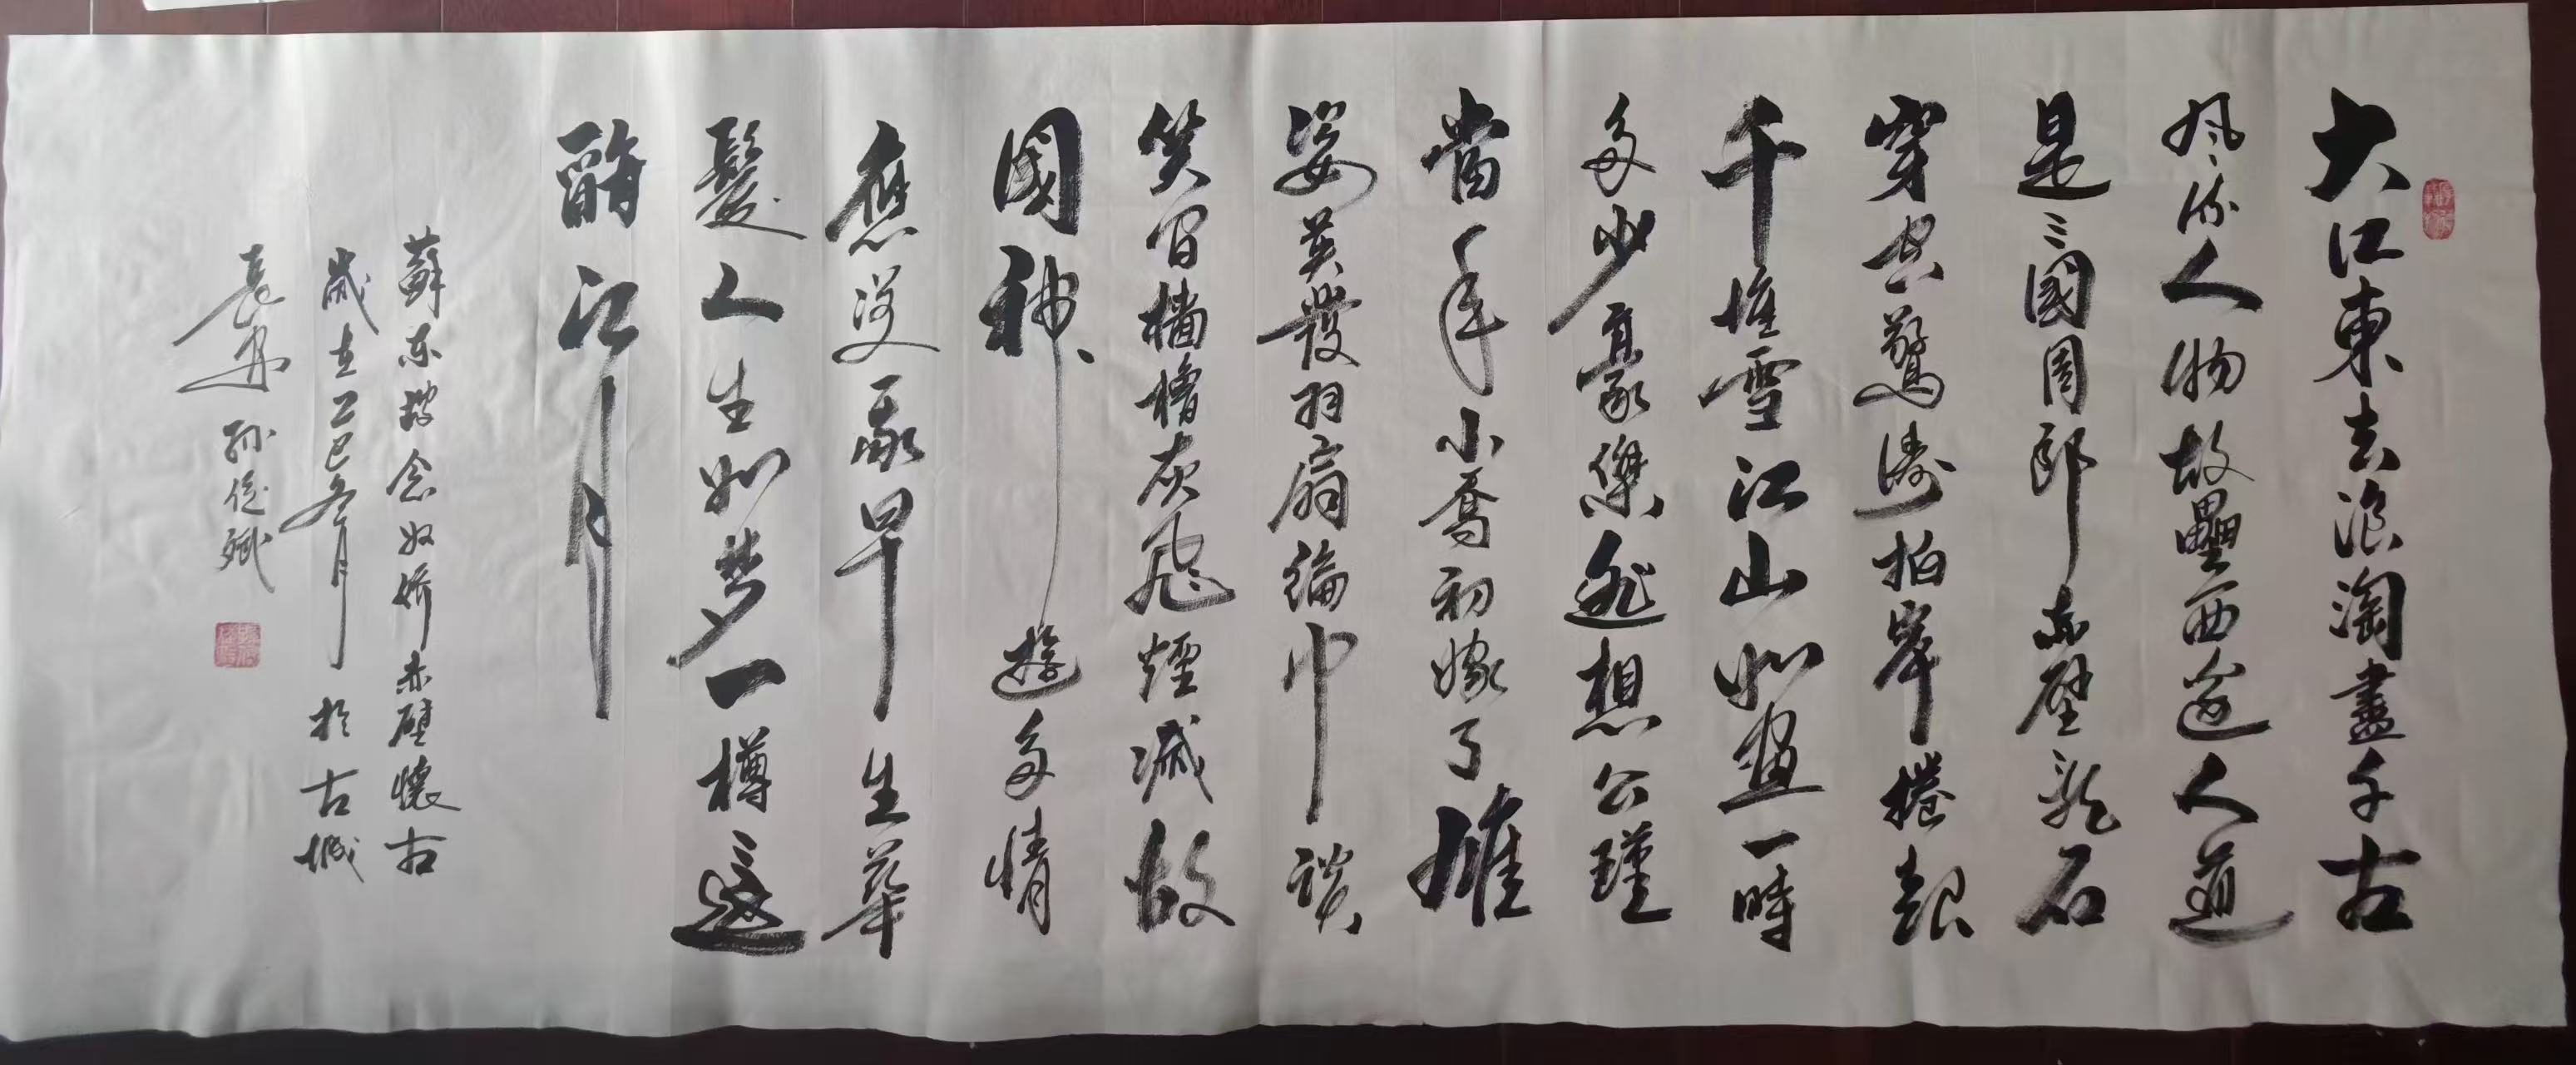 大江東去浪淘盡千古
風流人物故壘西邊人道
是三國周郎赤壁亂石
穿空驚濤拍岸捲起
千堆雪江山如畫一時
多少豪傑遙想公瑾
當年小喬初嫁了雄
姿英發羽扇綸巾談
笑間檣櫓灰飛煙滅故
國神遊多情
應笑我早生華
髮人生如夢一樽還
酹江月
蘇東坡念奴嬌赤壁懷古
歲在乙巳冬月於古城
孫